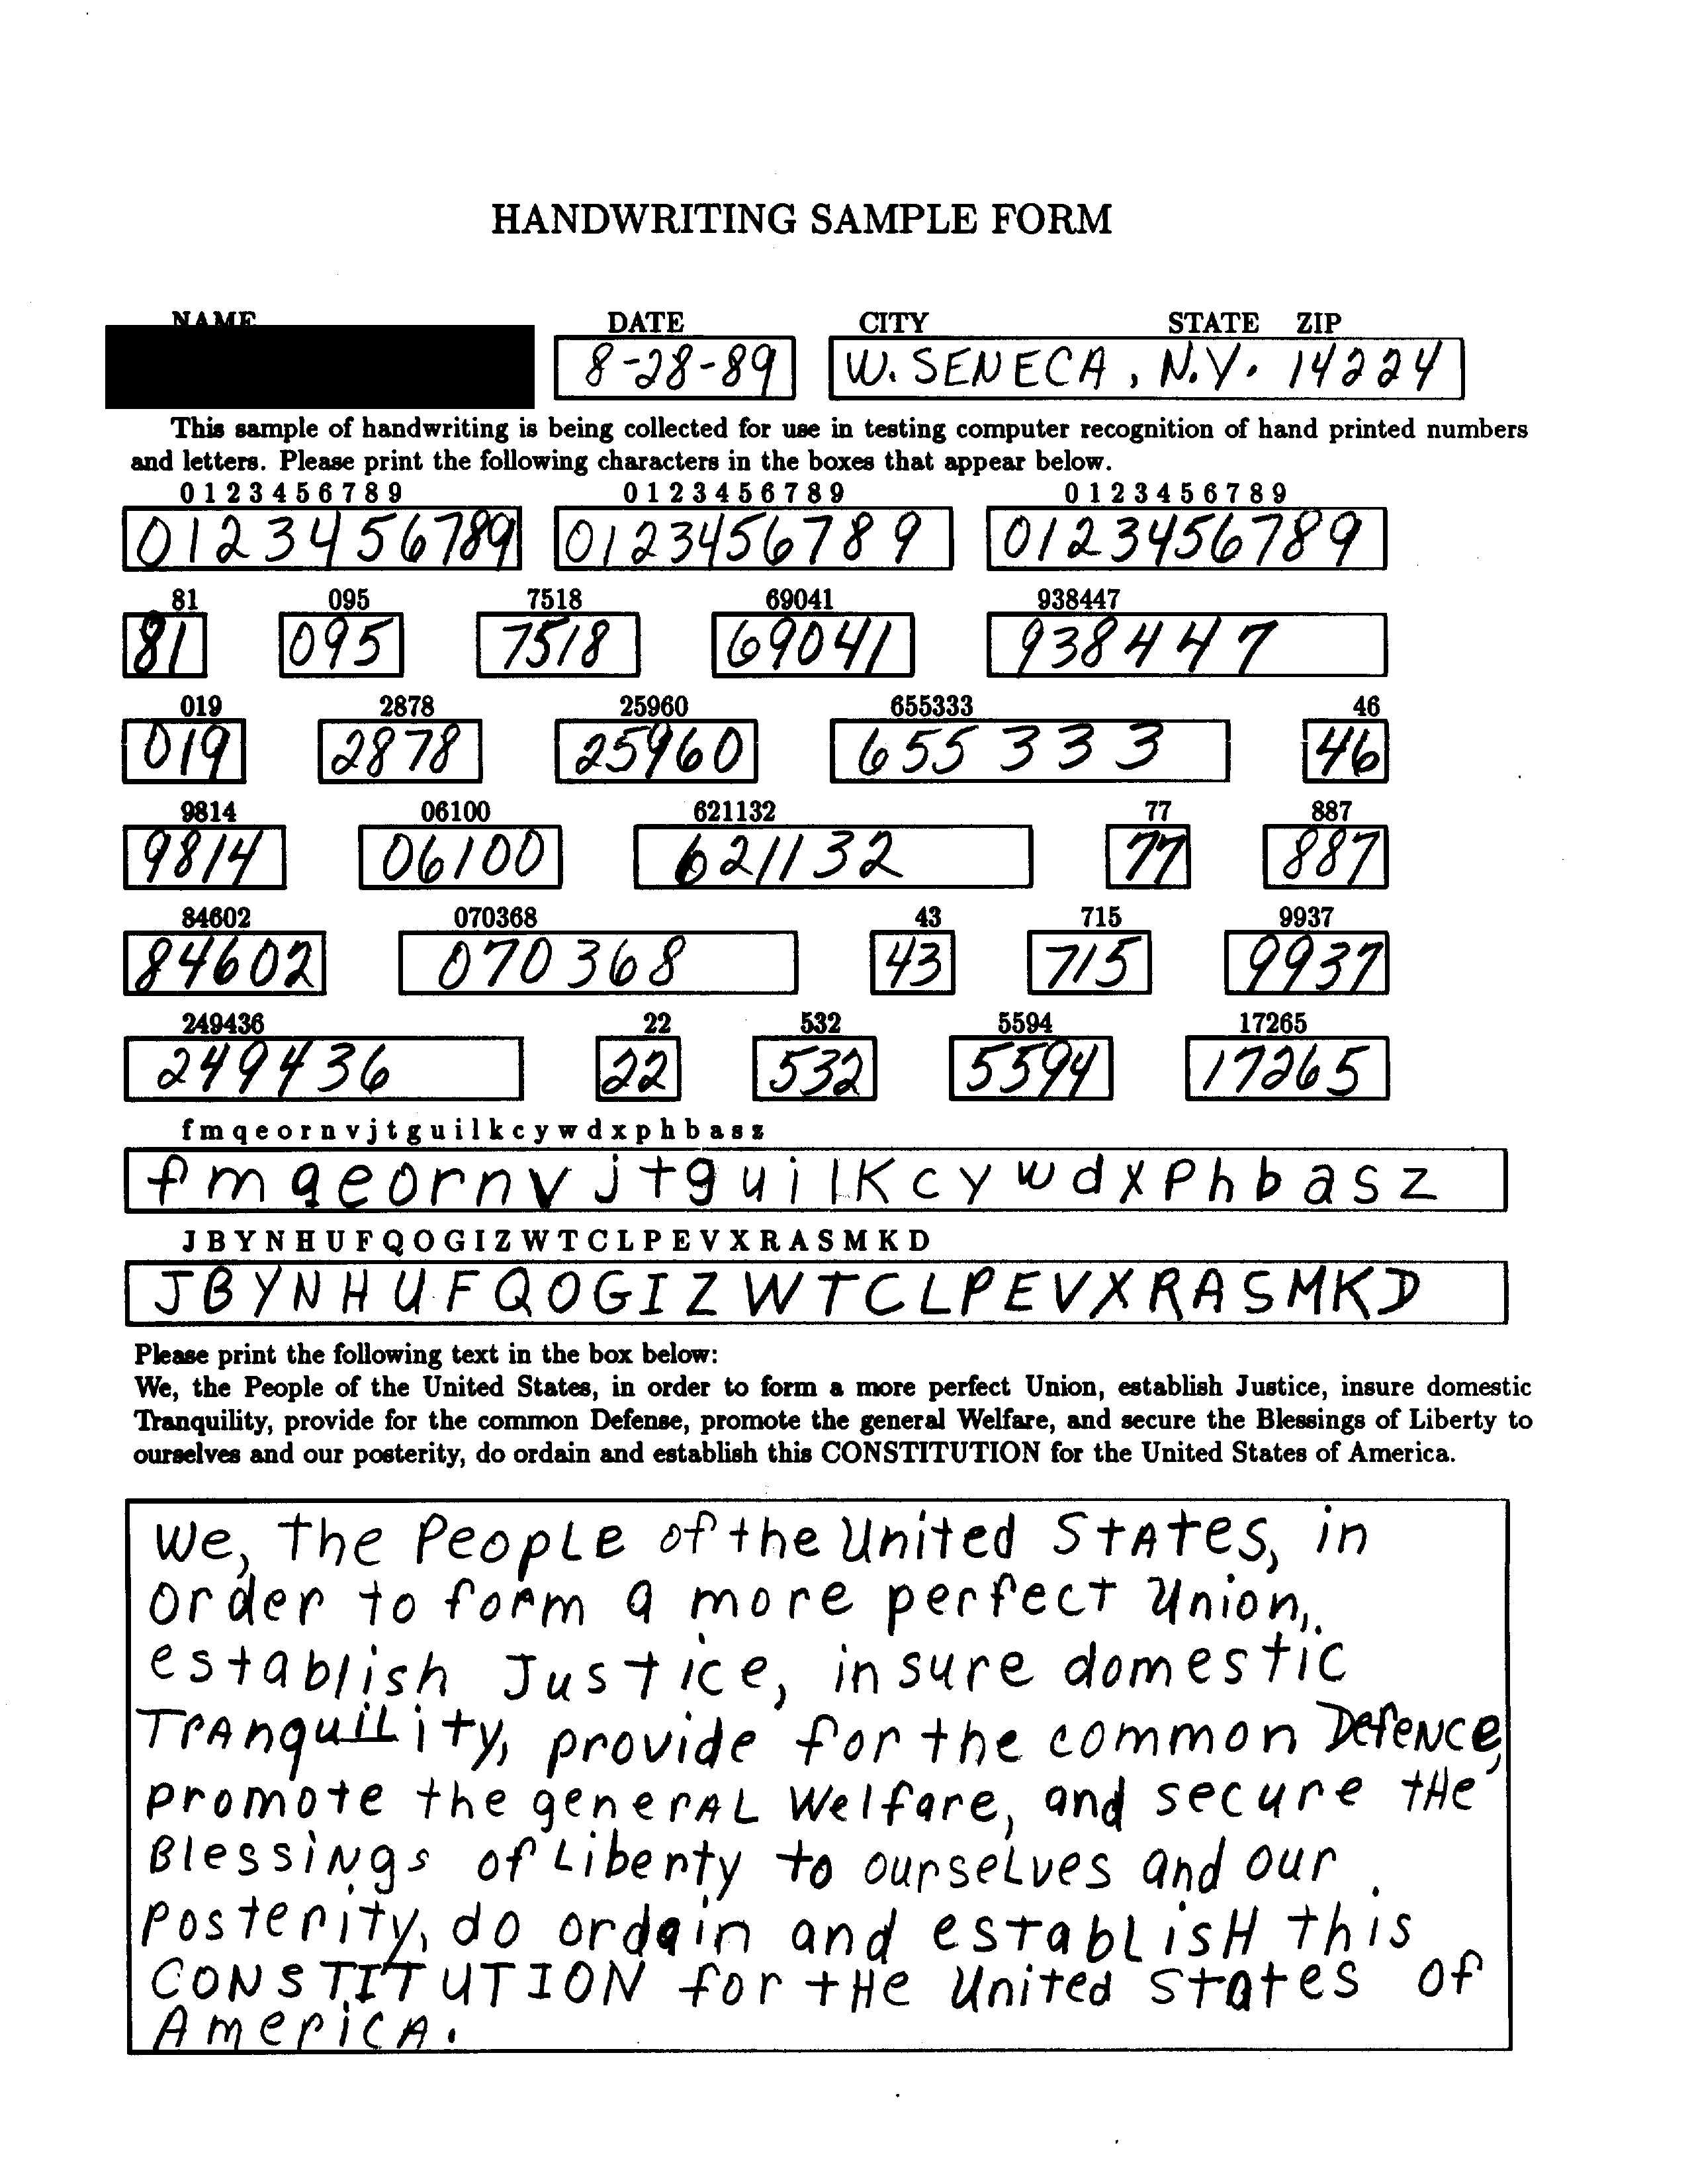 HANDWRITING SAMPLE FORM
NAME DATE CITY STATE ZIP
8-28-89 W. SENECA, N.Y. 14224
This sample of handwriting is being collected for use in testing computer recognition of hand printed numbers
and letters. Please print the following characters in the boxes that appear below.
0 1 2 3 4 5 6 7 8 9 0 1 2 3 4 5 6 7 8 9 0 1 2 3 4 5 6 7 8 9
0123456789 0123456789 0123456789
81 095 7518 69041 938447
81 095 7518 69041 938447
019 2878 25960 655333 46
019 2878 25960 655333 46
9814 06100 621132 77 887
9814 06100 621132 77 887
84602 070368 43 715 9937
84602 070368 43 715 9937
249436 22 532 5594 17265
249436 22 532 5594 17265
f m q e o r n v j t g u i l k c y w d x p h b a s z
f m q e o r n v j t g u i l K c y w d x P h b a s z
J B Y N H U F Q O G I Z W T C L P E V X R A S M K D
J B Y N H U F Q O G I Z W T C L P E V X R A S M K D
Please print the following text in the box below:
We, the People of the United States, in order to form a more perfect Union, establish Justice, insure domestic
Tranquility, provide for the common Defense, promote the general Welfare, and secure the Blessings of Liberty to
ourselves and our posterity, do ordain and establish this CONSTITUTION for the United States of America.
We, The PeopLE of the United StAtes, in
order to form a more perfect Union,
establish Justice, insure domestic
TRAnquiLity, provide for the common DefeNce,
promote the generAL Welfare, and secure tHe
BlessiNgs of Liberty to ourseLves and our
posterity, do ordain and estabLisH this
CONSTITUTION for tHe United States of
AmericA.